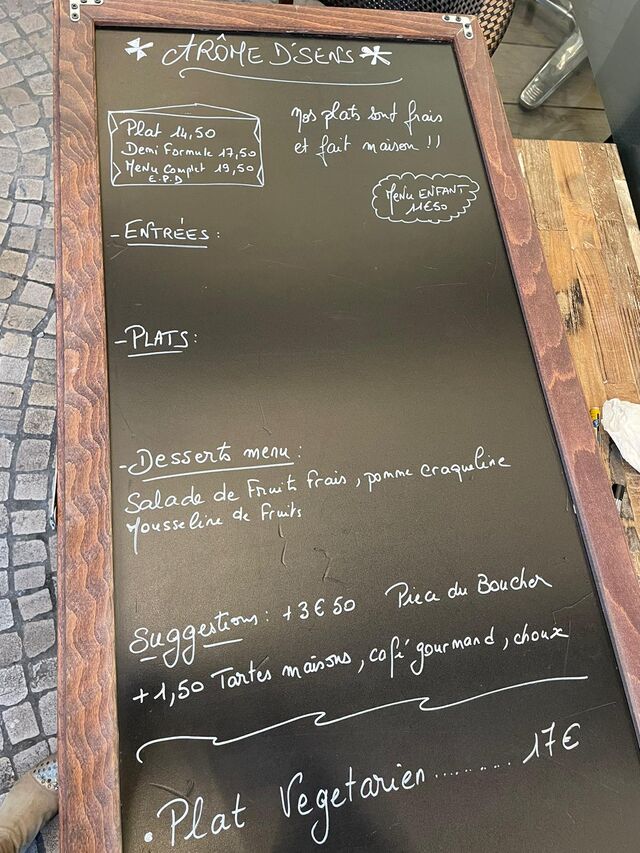 * ARÔME D'SENS *
Plat 14,50
Demi Formule 17,50
Menu Complet 19,50
E.P.D
Nos plats sont frais
et fait maison !!
Menu ENFANT
11€50
- ENTRÉES :
- PLATS :
- Desserts menu :
Salade de Fruits frais, pomme craqueline
Mousseline de Fruits
Suggestions : +3€50 Piece du Boucher
+1,50 Tartes maisons, café gourmand, choux
• Plat Vegetarien ......... 17€